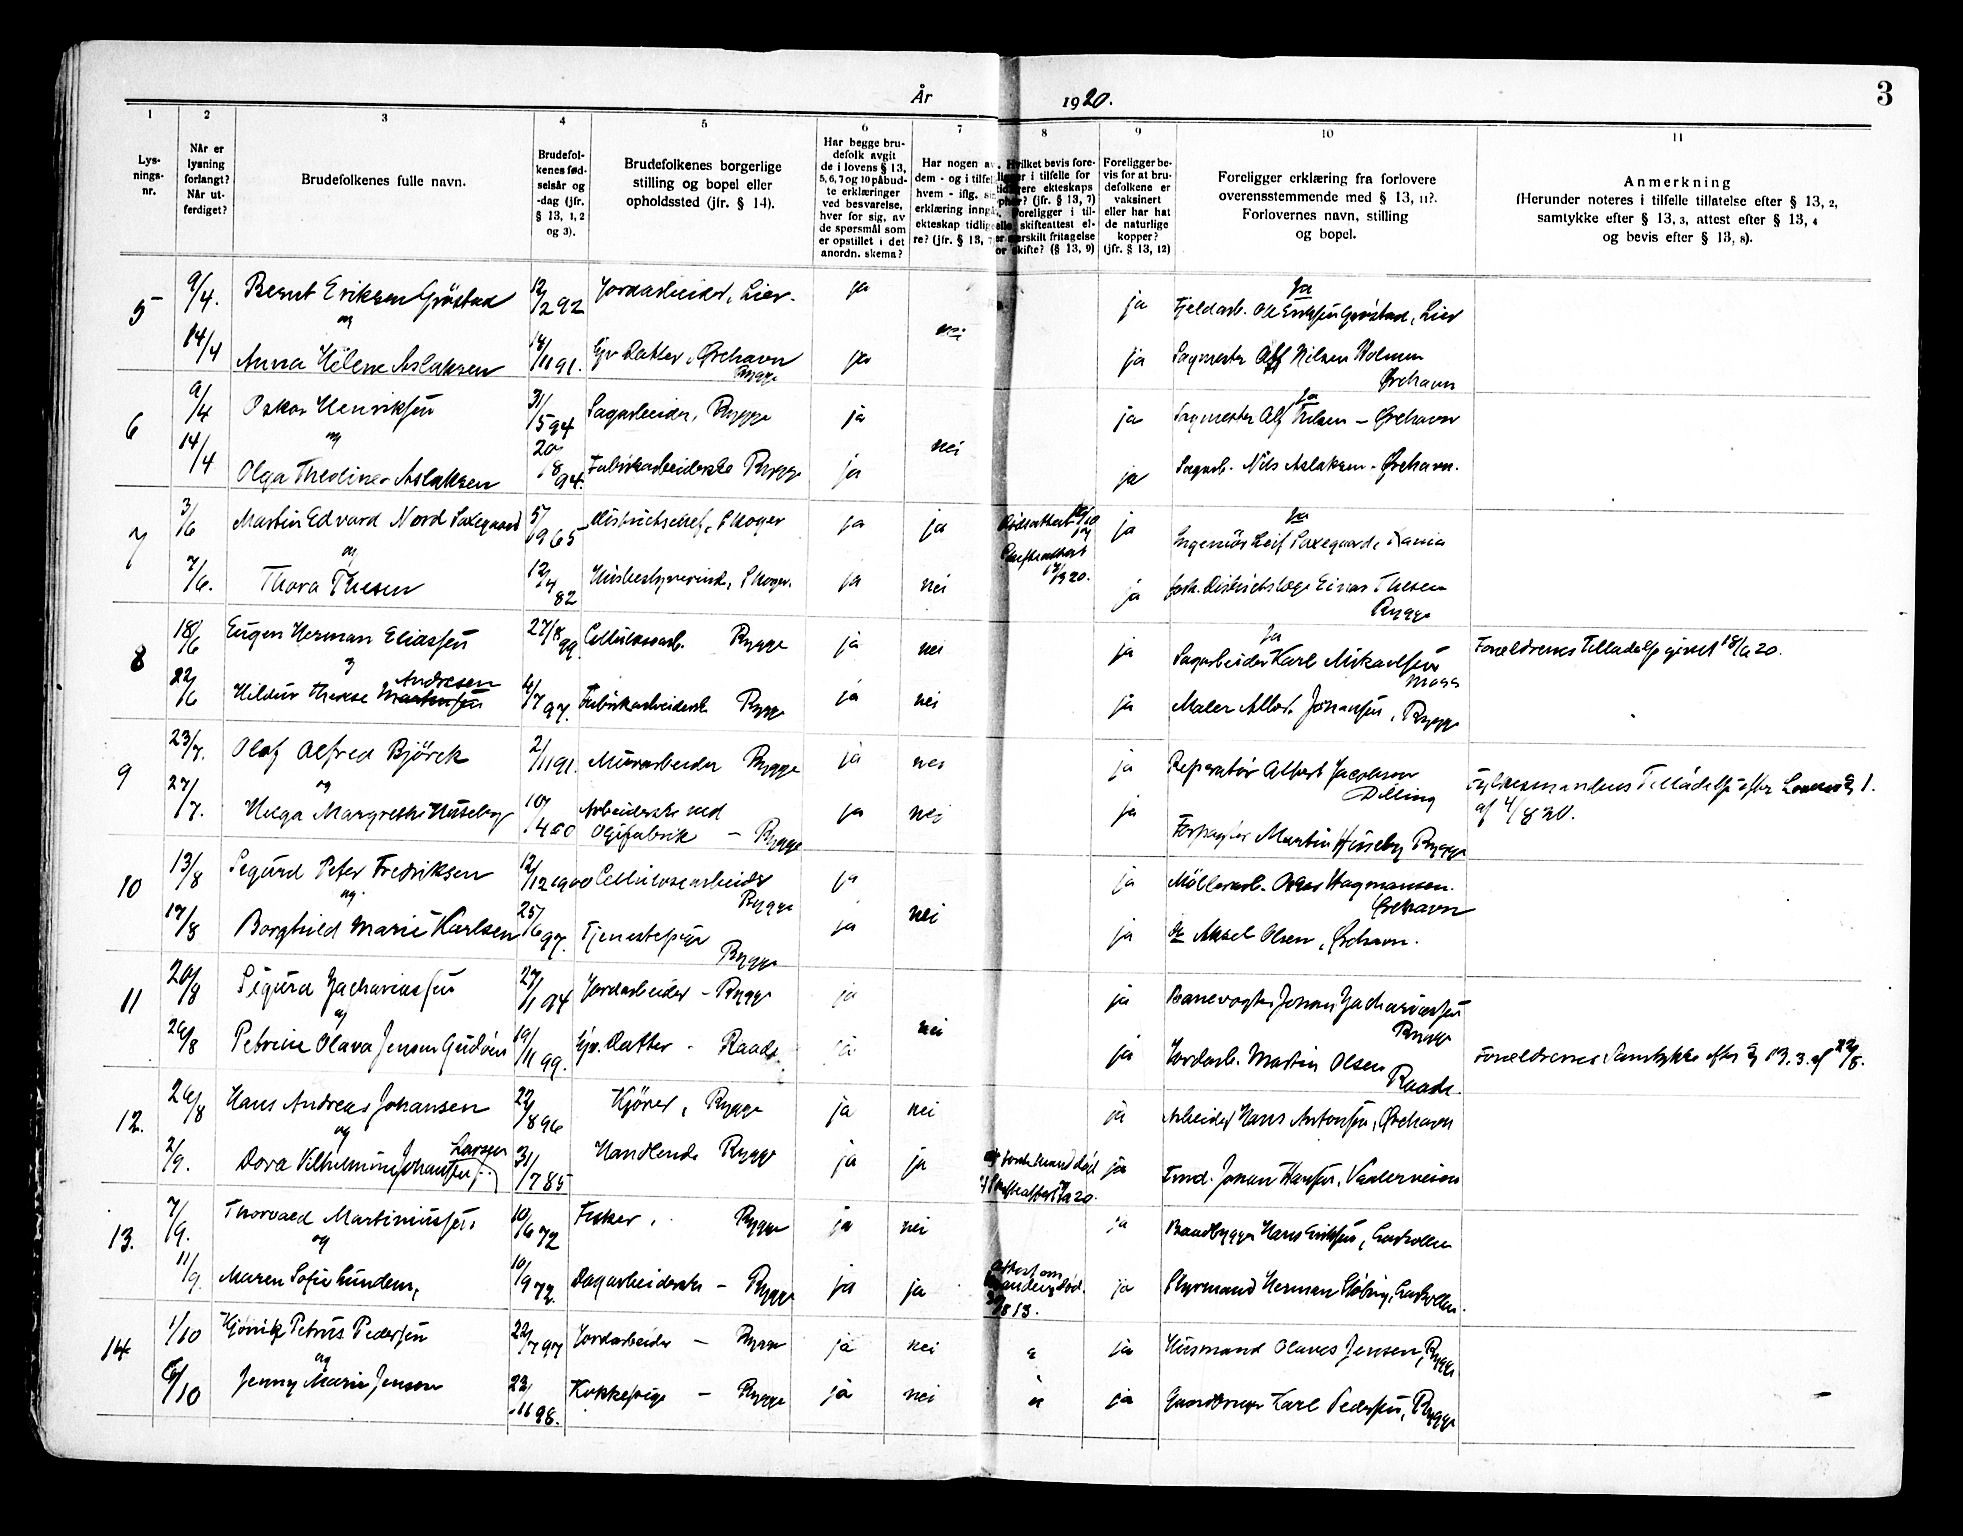 År 1920. 3
1 2 3 4 5 6 7 8 9 10 11
Lys-
nings-
nr.
Når er
lysning
forlangt?
Når ut-
ferdiget?
Brudefolkenes fulle navn.
Brudefol-
kenes fød-
selsår og
-dag (jfr.
§ 13, 1, 2
og 3).
Brudefolkenes borgerlige
stilling og bopel eller
opholdssted (jfr. § 14).
Har begge bru-
defolk avgit
de i lovens § 13,
5, 6, 7 og 10 påbud-
te erklæringer
ved besvarelse,
hver for sig, av
de spørsmål som
er opstillet i det
anordn. skema?
Har nogen av
dem - og i tilfel
hvem - iflg.
erklæring inngå
ekteskap tidlige
re? (jfr. § 13, 7
Hvilket bevis fore-
ligger i tilfelle for
tidligere ekteskaps
ophør? (jfr. § 13, 7)
Foreligger i til-
felle skifteattest el-
ler særskilt fritagelse
for skifte? (§ 13, 9)
Foreligger be-
vis for at bru-
defolkene er
vaksinert
eller har hat
de naturlige
kopper?
(jfr. § 13, 12)
Foreligger erklæring fra forlovere
overensstemmende med § 13, 11?.
Forlovernes navn, stilling
og bopel.
Anmerkning
(Herunder noteres i tilfelle tillatelse efter § 13, 2,
samtykke efter § 13, 3, attest efter § 13, 4
og bevis efter § 13, 8).
5 9/4. Bernt Eriksen Grøstad 12/2 92 Jordarbeider, Lier. ja ja Ja
Fjeldarb. Ole Eriksen Grøstad, Lier
og nei
14/4 Anna Helene Aslaksen 18/11 91. Gjv. Datter, Ørehavn ja ja Sagmester Alf Nilsen Holmen
Rygge Ørehavn
6 9/4 Oskar Henriksen 31/5 94 Sagarbeider, Rygge ja ja Ja
Sagmester Alf Nilsen – Ørehavn
og nei
14/4 Olga Thedine Aslaksen 20/8 94. Fabrikarbeiderske Rygge ja ja Sagarb. Nils Aslaksen - Ørehavn.
7 3/6 Martin Edvard Nord Saxegaard 5/9 65 Distriktschef, Skoger ja ja ja Ja
Ingeniør Leif Saxegaard,
og Skifteattest
7/6. Thora Thesen 12/7 82 Husbestyrerinde, Skoger. ja nei ja Distriktslæge Einar Thesen
Rygge
8 18/6 Eugen Herman Eliassen 27/8 99. Cellulosearb. Rygge ja nei ja Ja
Sagarbeider Karl Mikaelsen Moss
Forældrenes Tilladelse givet 18/6 20.
og
22/6 Hildur Therese Martinsen Andresen 4/7 97. Fabrikarbeiderske Rygge ja nei ja Maler Albert Johansen, Rygge
9 23/7. Olaf Alfred Björck 2/11 91. Murarbeider Rygge ja nei ja Reparatør Albert Jacobson
Dilling
og Fylkesmandens Tilladelse efter Lovens § 1.
af 4/8 20.
27/7. Helga Margrethe Huseby 10/4 00 Arbeiderske ved ja nei ja
– Rygge Forpagter Martin Huseby Rygge
10 13/8 Sigurd Peter Fredriksen 12/12 1900 Cellulosearbeider ja ja Möllerarb. Hagmansen.
Rygge Ørehavn
og nei
17/8 Borghild Marie Karlsen 25/6 97. Tjenestepige ja ja Aksel Olsen, Ørehavn.
Rygge
11 20/8 Sigurd Zachariassen 27/1 94 Jordarbeider – Rygge ja ja Banevogter Johan Zachariassen
Rygge
og nei
26/8 Petrine Olava Jensen Gudim 19/11 99. Gjv. Datter - Raade. ja ja Jordarb. Martin Olsen
Raade.
Forældrenes Samtykke efter § 13.3. af 22/8.
12. 26/8 Hans Andreas Johansen 22/8 96 Kjører, Rygge ja nei ja Arbeider Hans Antonsen, Ørehavn
og
2/9. Dora Vilhelmine Johansen Larsen 31/7 85 Handlende Rygge ja ja ja Johan Hansen, Vaalerveien
13. 7/9. Thorvald Martiniussen 10/6 72 Fisker, Rygge ja nei ja Baadbygger Hans Eriksen, Larkollen
og
11/9. Maren Sofie Lundem, 10/9 72. Dagarbeiderske – Rygge ja ja Attest om
Mandens Død.
ja Styrmand Herman Støbrig, Larkollen.
14 1/10 Hjørnik Petrus Pedersen 22/7 97 Jordarbeider – Rygge ja nei ja Husmand Olaves Jensen, Rygge
og
6/10 Jenny Marie Jensen 22/11 98. Kokkepige – Rygge ja nei ja Karl Pedersen, Rygge